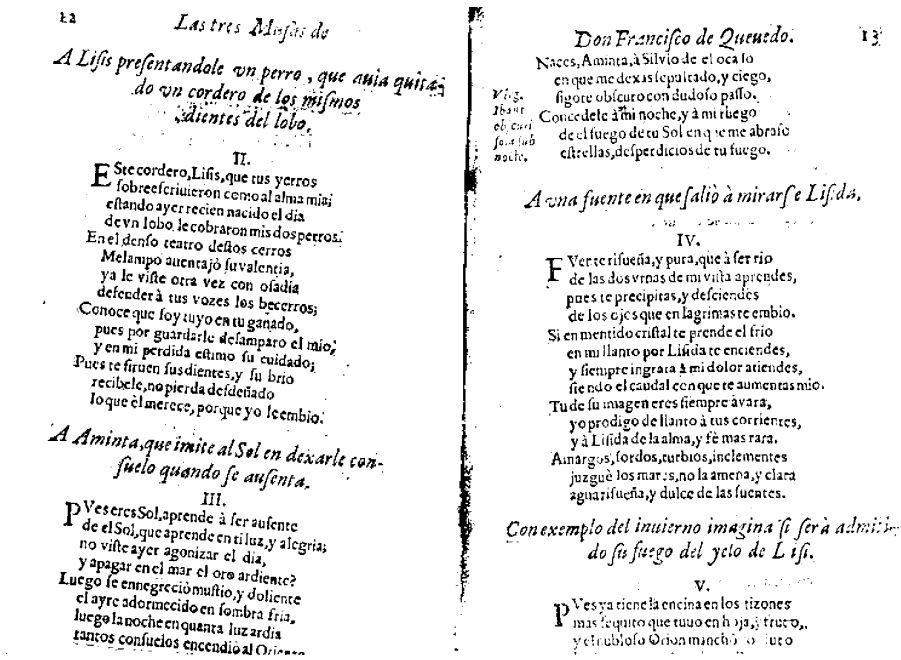 12 Las tres Musas de
A Lisis presentandole vn perro, que auia quita-
do vn cordero de los mismos
dientes del lobo.
II.
ESte cordero, Lisis, que tus yerros
sobreescriuieron como al alma mia;
estando ayer recien nacido el dia
de vn lobo le cobraron mis dos perros.
En el denso teatro destos cerros
Melampo auentajò su valentia,
ya le viste otra vez con osadia
defender à tus vozes los becerros;
Conoce que soy tuyo en tu ganado,
pues por guardarle desamparo el mio;
y en mi perdida estimo su cuidado;
Pues te siruen sus dientes, y su brio
recibele, no pierda desdeñado
lo que èl merece, porque yo le embio.
A Aminta, que imite al Sol en dexarle con-
suelo quando se ausenta.
III.
PVes eres Sol, aprende à ser ausente
de el Sol, que aprende en ti luz, y alegria;
no viste ayer agonizar el dia,
y apagar en el mar el oro ardiente?
Luego se ennegreciò mustio, y doliente
el ayre adormecido en sombra fria,
luego la noche en quanta luz ardia
tantos consuelos encendiò al Oriente
Don Francisco de Queuedo. 13
Naces, Aminta, à Siluio de el ocaso
en que me dexas sepultado, y ciego,
sigote obscuro con dudoso passo.
Concedele à mi noche, y à mi ruego
de el fuego de tu Sol en que me abraso
estrellas, desperdicios de tu fuego.
Virg.
Ibant
obscuri
sola sub
nocte.
A vna fuente en que saliò à mirarse Lisida.
IV.
FVente risueña, y pura, que à ser rio
de las dos vrnas de mi vista aprendes,
pues te precipitas, y desciendes
de los ojos que en lagrimas te embio.
Si en mentido cristal te prende el frio
en mi llanto por Lisida te enciendes,
y siempre ingrata à mi dolor atiendes,
siendo el caudal con que te aumentas mio.
Tu de su imagen eres siempre auara,
yo prodigo de llanto à tus corrientes,
y à Lisida de la alma, y fè mas rara.
Amargos, sordos, turbios, inclementes
juzguè los mares, no la amena, y clara
agua risueña, y dulce de las fuentes.
Con exemplo del inuierno imagina si serà admiti-
do su fuego del yelo de Lisi.
V.
PVes ya tiene la encina en los tizones
mas sequito que tuuo en hoja, y fruto,
y el nubloso Orion manchò luto